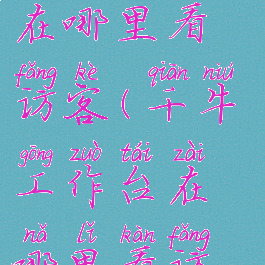 在哪里看
fǎng kè qiān niú
访客(千牛
gōng zuò tái zài
工作台在
nǎ lǐ kàn fǎng
哪里看访